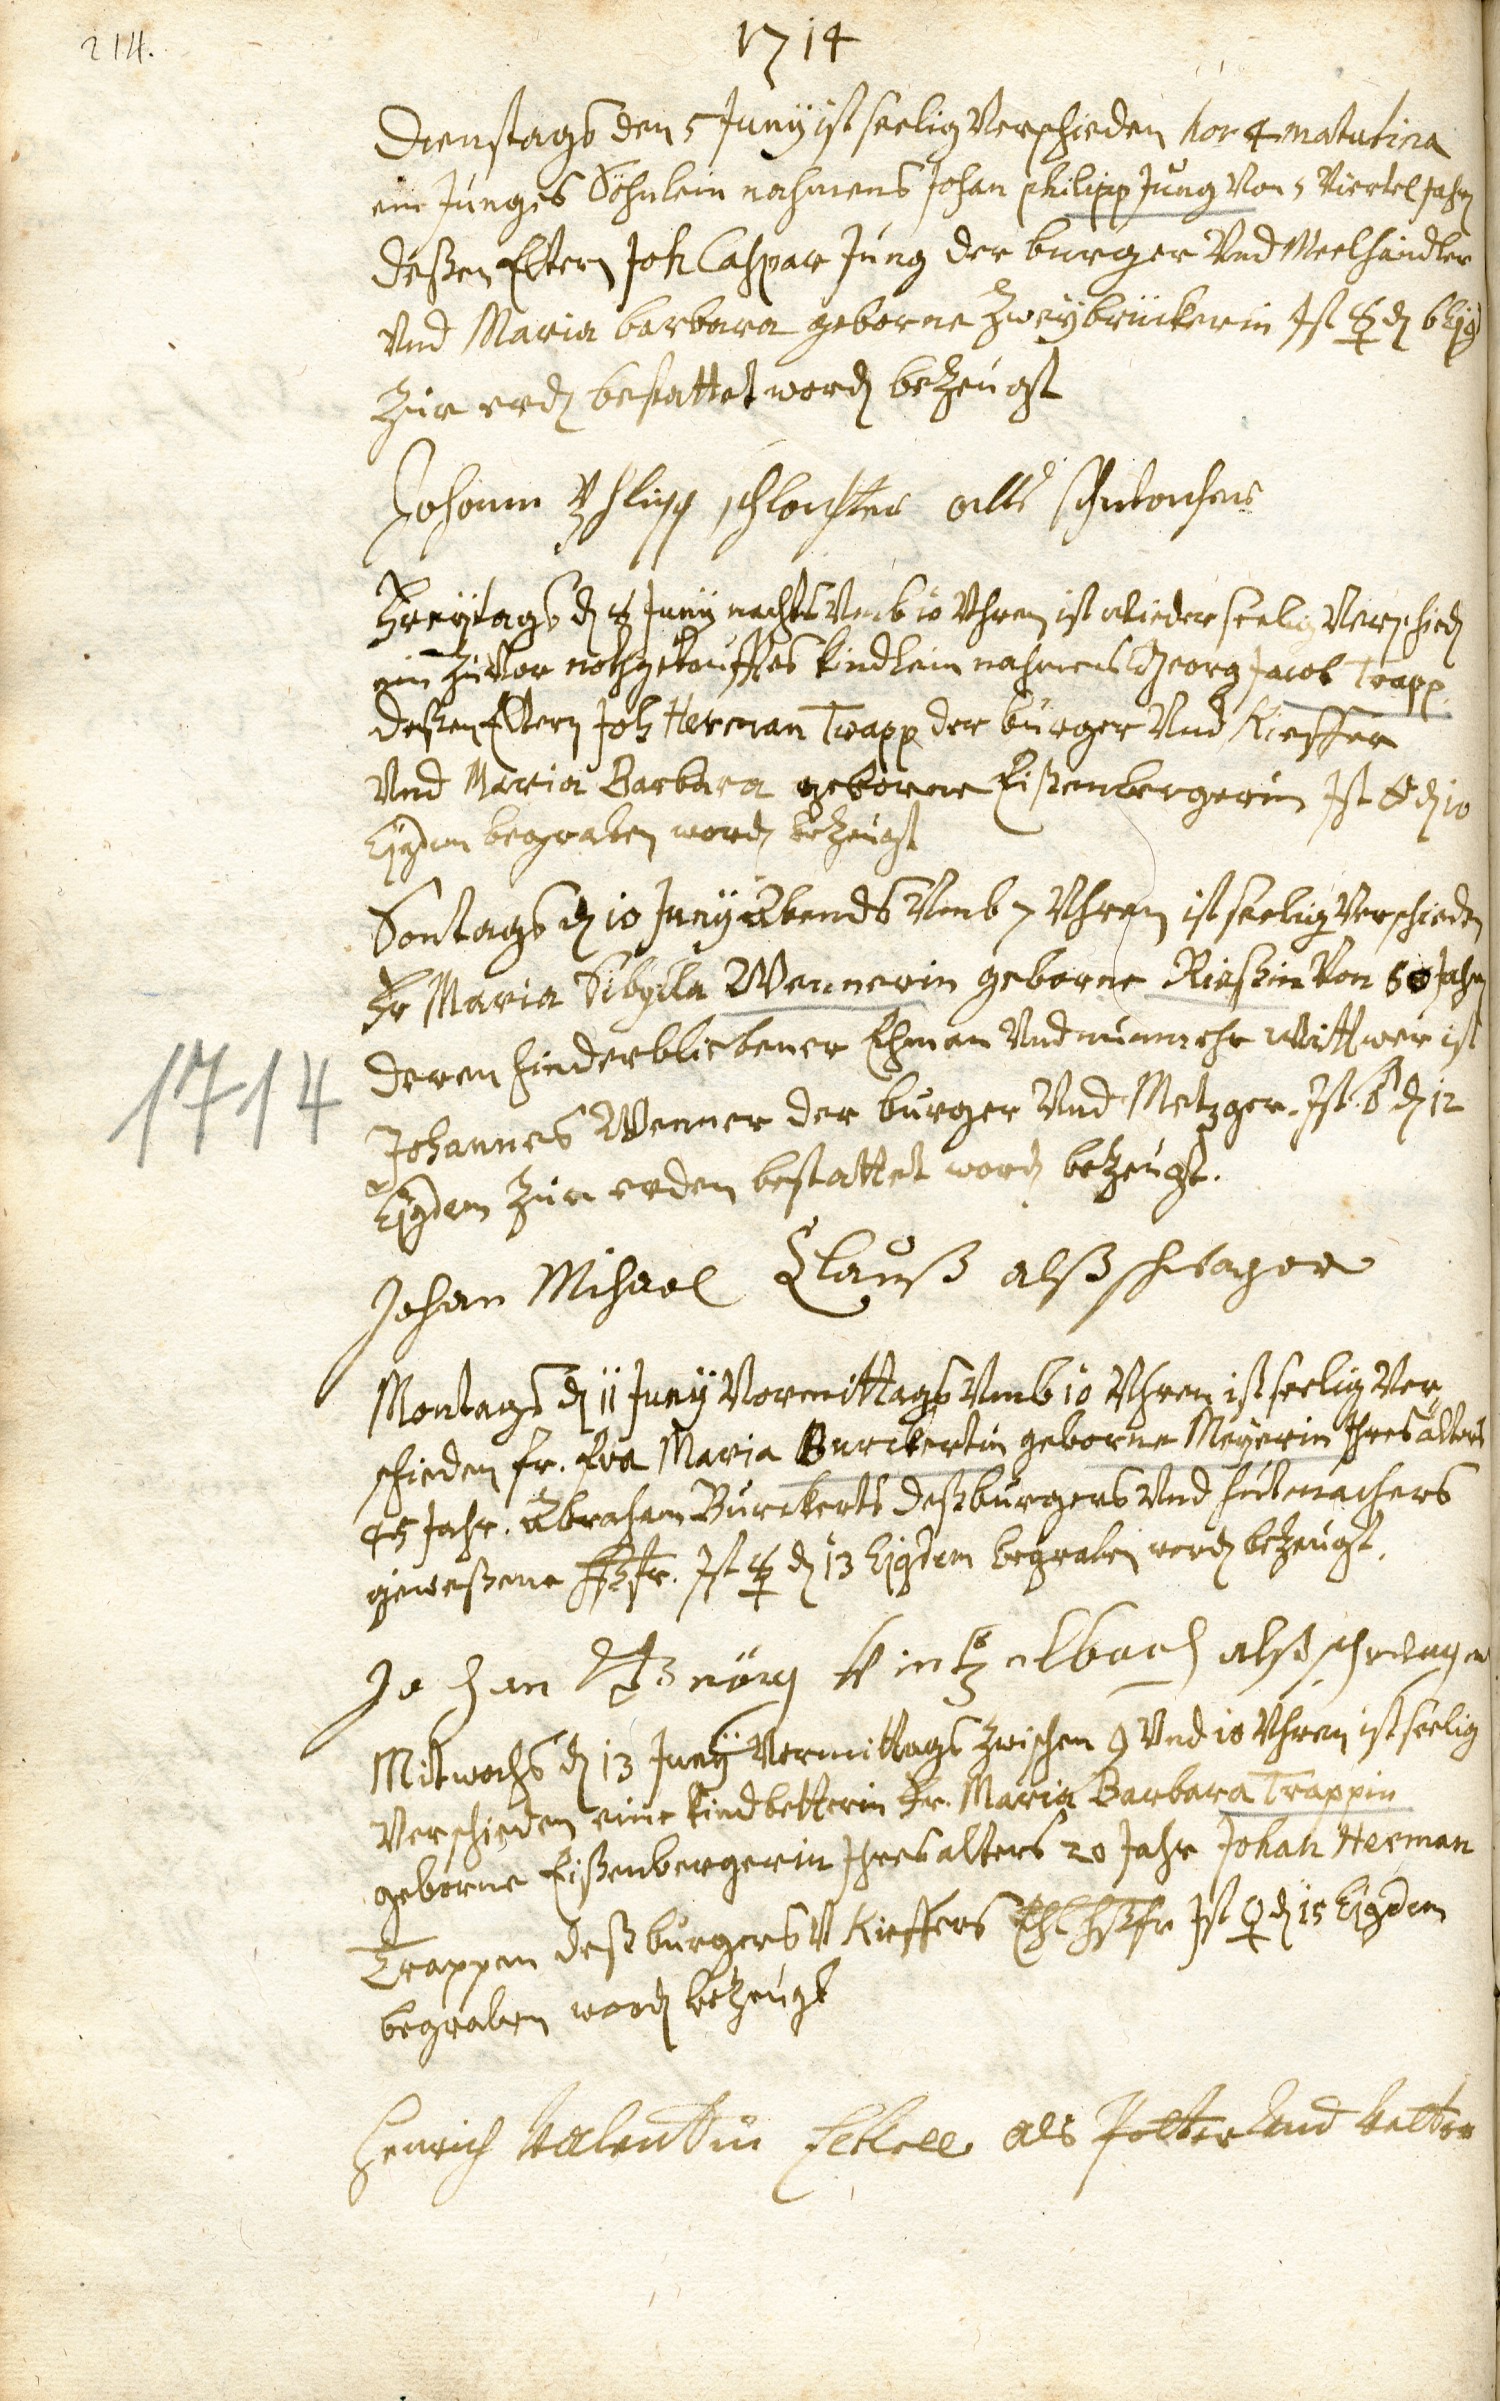 214.
1714
Dienstags den 5 Junÿ ist seelig Verschieden hor 4 matutina
ein Junges Söhnlein nahmens Johan philipp Jung Von 5 Viertel Jahr
deßen Eltern Joh Caspar Jung der burger Vnd Meelhändler
Vnd Maria barbara geborne Zweÿbrückerin Ist ☿ d 6 Ejgd
Zur erd bestattet word bezeugt
Johann Philipp schlachter alls
Freÿtags d 8 Junÿ nachts Vmb 10 Vhren ist wieder seelig Verschied
ein Zuvor nothgetaufftes kindlein nahmens Georg Jacob Trapp
deßen Eltern Joh Herman Trapp der burger Vnd Kieffer
Vnd Maria Barbara geborne Eißenbergerin Ist ☉ d 10
Ejgdem begraben word bezeugt
Sontags d 10 Junÿ Abends Vmb 7 Vhren ist seelig Verschieden
Fr Maria Sibylla Wennerin geborne Rießin Von 50 Jahr
1714
deren hinderbliebener Ehman Vnd nunmehr Wittwer ist
Johannes Wenner der burger Vnd Metzger. Ist ♂ d 12
Ejgdem Zur erden bestattet word bezeugt.
Johan Mihael Clauß alß schwager
Montags d 11 Junÿ Vormittags Vmb 10 Vhren ist seelig Ver
schieden fr. Eva Maria Burckertin geborne Meÿerin Ihres alters
45 Jahr. Abraham Burckerts deß burgers Vnd hutmachers
geweßene Hßfr. Ist ☿ d 13 Ejgdem begraben word bezeugt.
Johan Kintzelbach alß schwager
Mitwochs d 13 Junÿ Vormittags Zwischen 9 Vnd 10 Vhren ist seelig
Verschieden eine kindbetterin Fr. Maria Barbara Trappin
geborne Eißenbergerin Ihres alters 20 Jahr Johan Herman
Trappen deß burgers V Kieffers Ehl Hßfr Ist ♀ d 15 Ejgdem
begraben word bezeugt
Henrich Valentin als Vnd Vetter